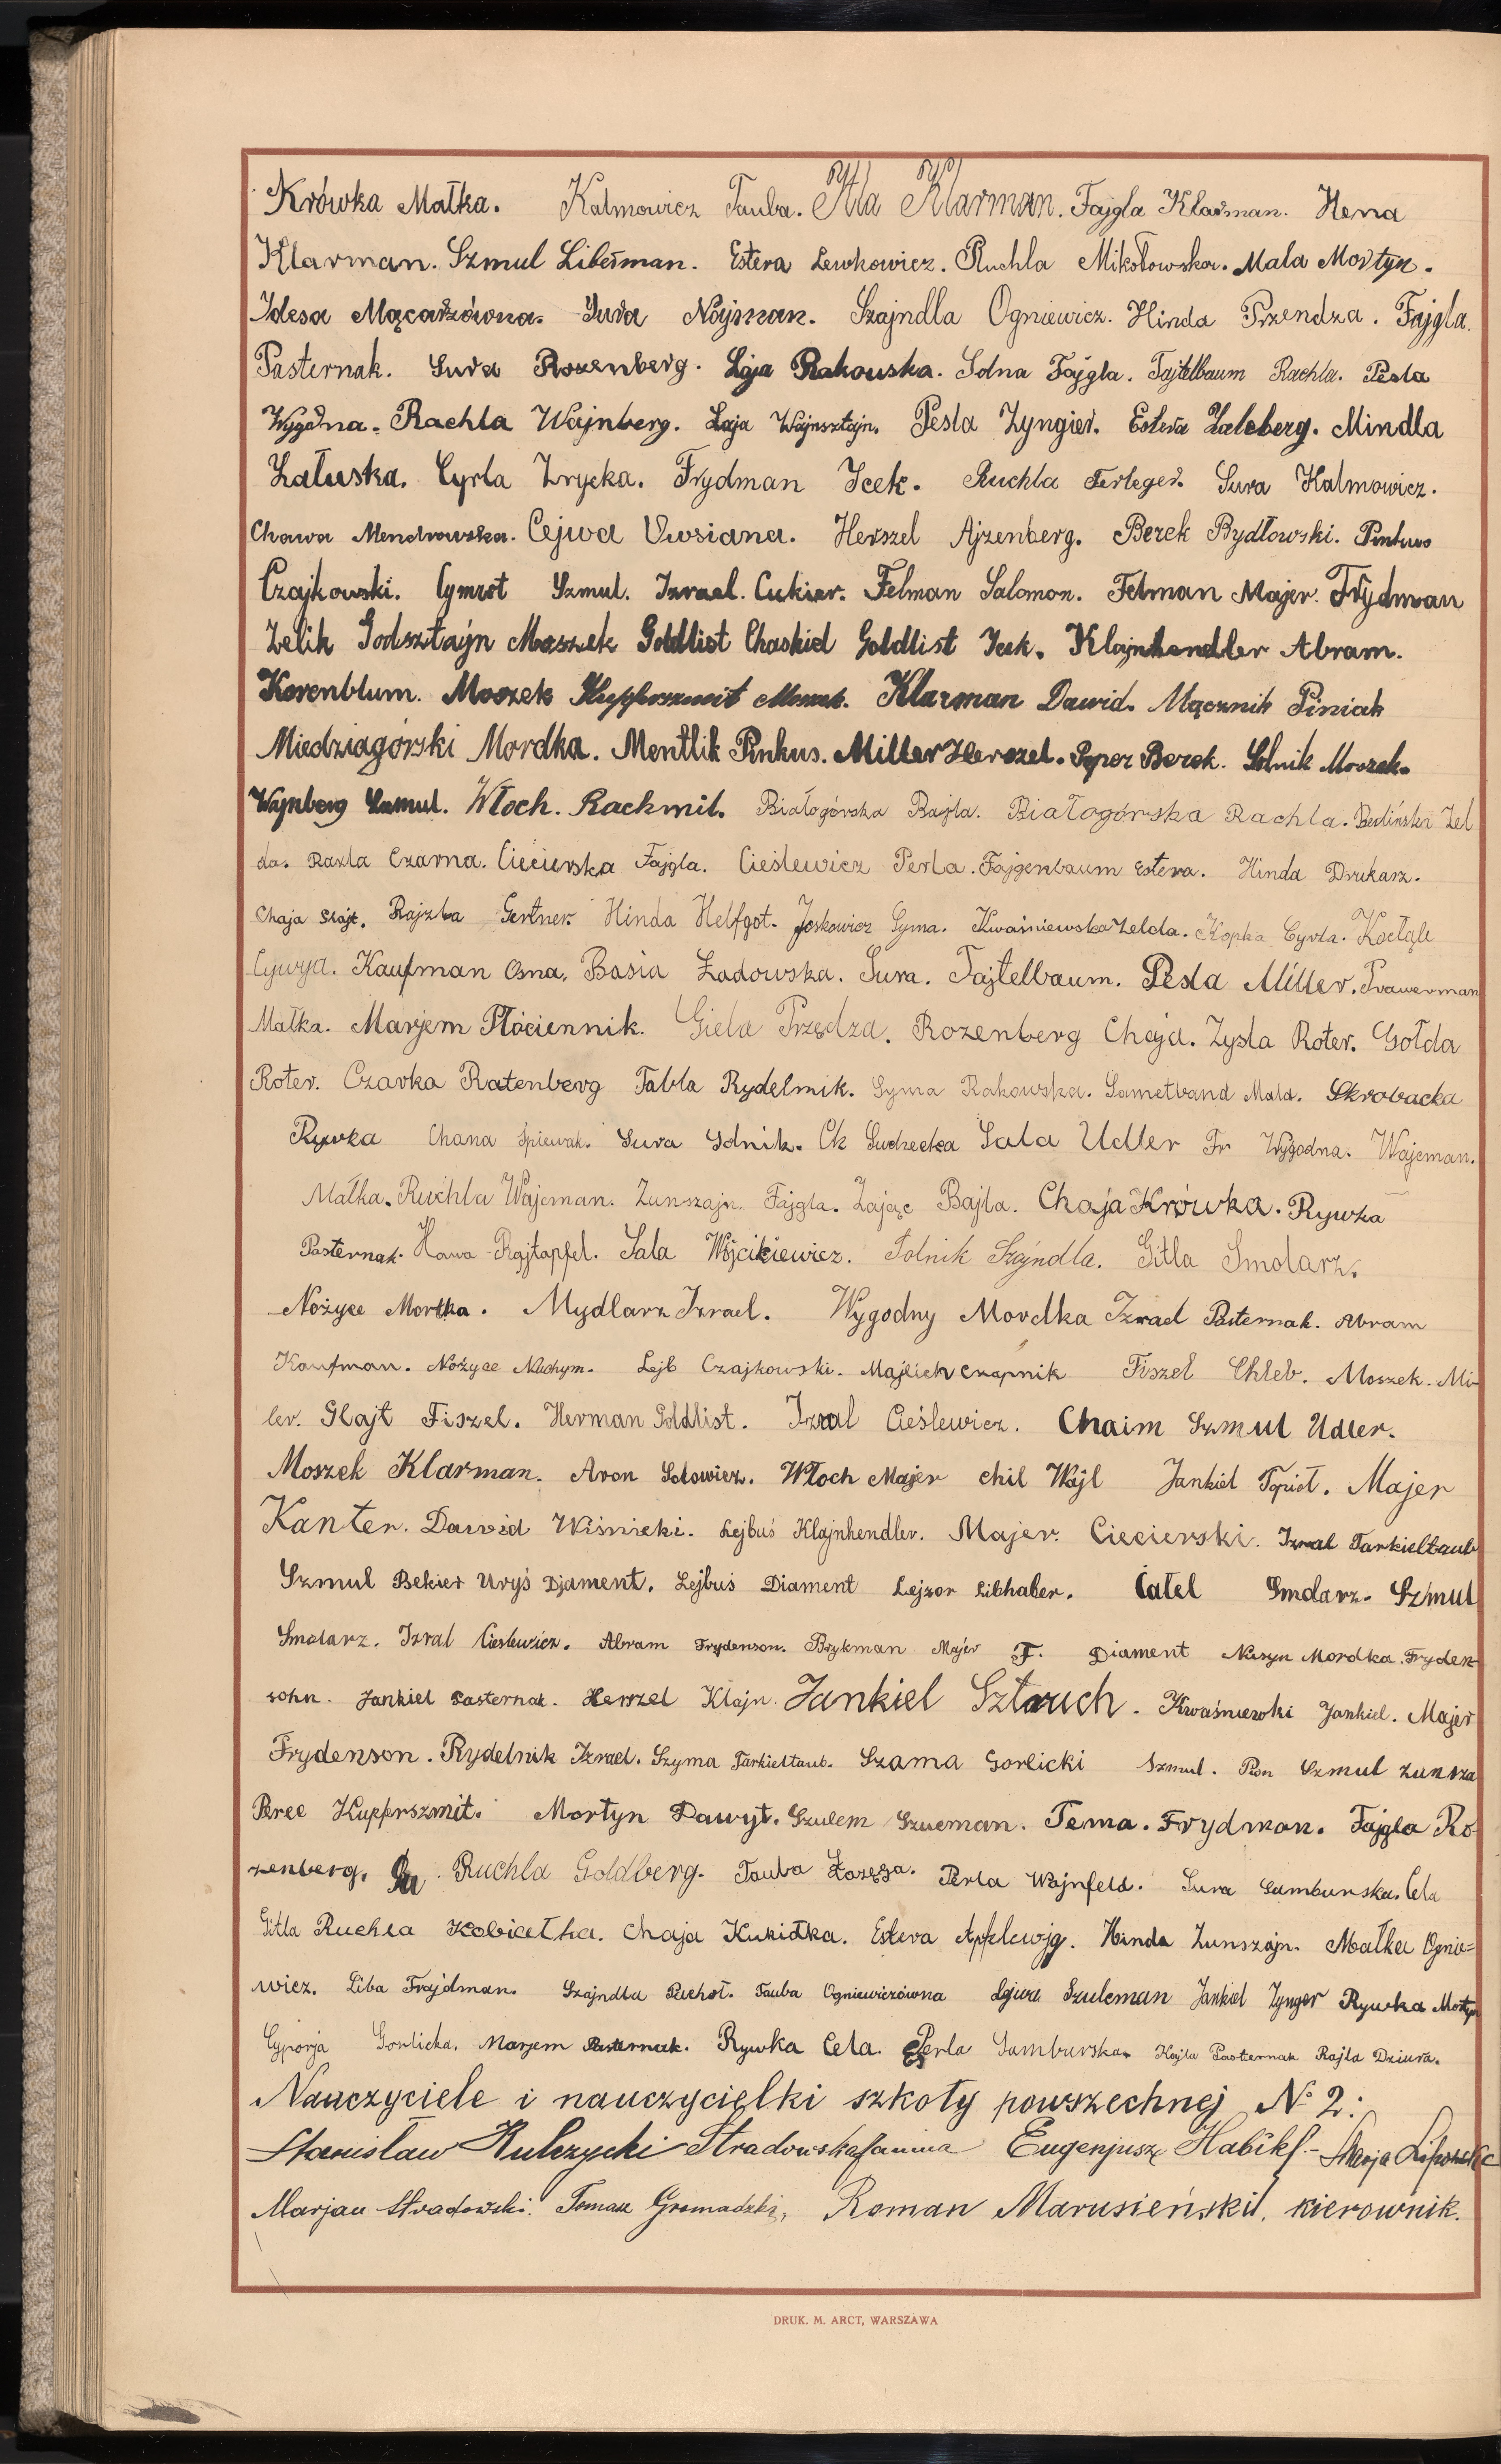 Krówka Małka. Kalmowicz Tauba. Klarman. Fajgla Klarman. Hena
Klarman. Szmul Liberman. Estera Lewkowicz. Ruchla Mikołowska. Mala Mortyn.
Idesa Mącarzówna. Sura Nojman. Szajndla Ogniewicz. Hinda Przendza. Fajgla
Pasternak. Sura Rozenberg. Laja Rakowska. Solna Fajgla. Tajtelbaum Rachla. Pesla
Wygodna. Rachla Wajnberg. Laja Wajnsztajn. Pesla Zyngier. Estera Zaleberg. Mindla
Załuska. Cyrla Zrycka. Frydman Icek. Ruchla Ferleger. Sura Halmowicz.
Chawa Mendrowska. Cejwa Uwsiana. Herszel Ajzenberg. Berek Bydłowski. Pinkus
Czajkowski. Cymrot Szmul. Izrael Cukier. Felman Salomon. Felman Majer. Frydman
Zelik Godsztajn Moszek Goldlist Chaskiel Goldlist Icek. Klajnhendler Abram.
Korenblum. Moszek Kupferszmit Klarman Dawid. Mącznik Piniak
Miedziagórski Mordka. Mentlik Pinkus. Miller Herszel. Poper Berek. Solnik Moszek.
Wajnberg Szmul. Włoch. Rachmil. Białogórska Bajla. Białogórska Rachla. Berlińska Zel
da. Razla Czarna. Ciecierska Fajgla. Cieślewicz Perla. Fajgenbaum Estera. Hinda Drukarz.
Chaja Glajt. Rajzla Gertner Hinda Helfgot. Joskowicz Syma. Kwaśniewska Zelda. Kopka Cyrla.
Cywja. Kaufman Osna. Basia Ładowska. Sura. Tajtelbaum. Pesla Miller. Prawerman
Małka. Marjem Płóciennik. Giela Przędza. Rozenberg Chaja. Zysla Roter. Gołda
Roter. Czarka Ratenberg Tabla Rydelnik. Syma Rakowska. Sametband Mala. Skrobacka
Rywka Chana Śpiewak. Sura Solnik. Ck Sudzecka Sala Udler Fr Wygodna. Wajcman.
Małka. Ruchla Wajcman. Zunszajn. Fajgla. Zając Bajla. Chaja Krówka. Rywka
Pasternak. Hawa Rajtapfel. Sala Wójcikiewicz. Solnik Szajndla. Gitla Smolarz.
Nożyce Mortka. Mydlarz Izrael. Wygodny Mordka Izrael Pasternak. Abram
Kaufman. Nożyce Nuchym. Lejb Czajkowski. Majlich Czapnik Fiszel Chleb. Moszek. Mi-
ler. Glajt Fiszel. Herman Goldlist. Izral Cieślewicz. Chaim Szmul Udler.
Moszek Klarman. Aron Solowicz. Włoch Majer Chil Wajl Jankiel Topioł. Majer
Kanter. Dawid Wiśnicki. Lejbuś Klajnhendler. Majer. Ciecierski. Izral Tarkieltaub
Szmul Bekier Uryś Djament. Lejbuś Diament Lejzor Libhaber. Całel Smolarz. Szmul
Smolarz. Izral Cieslewicz. Abram Frydenson. Brykman Majer F. Diament Nusyn Mordka. Fryden-
sohn. Jankiel Pasternak. Herszel Klajn. Jankiel Sztaruch. Kwaśniewski Jankiel. Majer
Frydenson. Rydelnik Izrael. Szyma Tarkieltaub. Szama Gorlicki Szmul. Pion Szmul Zunsza
Perec Kupferszmit. Mortyn Dawyt. Szulem Szucman. Tema. Frydman. Fajgla Ro-
zenberg. Ru Ruchla Goldberg. Tauba Perla Wajnfeld. Sura Samburska. Cela
Gitla Ruchla Kobiałka. Chaja Kukiołka. Estera Apfelcwjg. Hinda Zunszajn. Małka Ognie=
wicz. Liba Frajdman. Szajndla Puchoł. Tauba Ogniewiczówna Szuleman Jankiel Zynger Rywka Mortyn
Cyporja Gorlicka. Marjem Pasternak. Rywka Cela. Perla Samburska. Hajla Pasternak Rajla Dziura.
Nauczyciele i nauczycielki szkoły powszechnej № 2:
Stanisław Kulczycki Stradowska Janina Eugenjusz Habikf.- Marja
Marjan Stradowski. Tomasz Gromadzki, Roman Marusieński, kierownik.
DRUK. M. ARCT, WARSZAWA